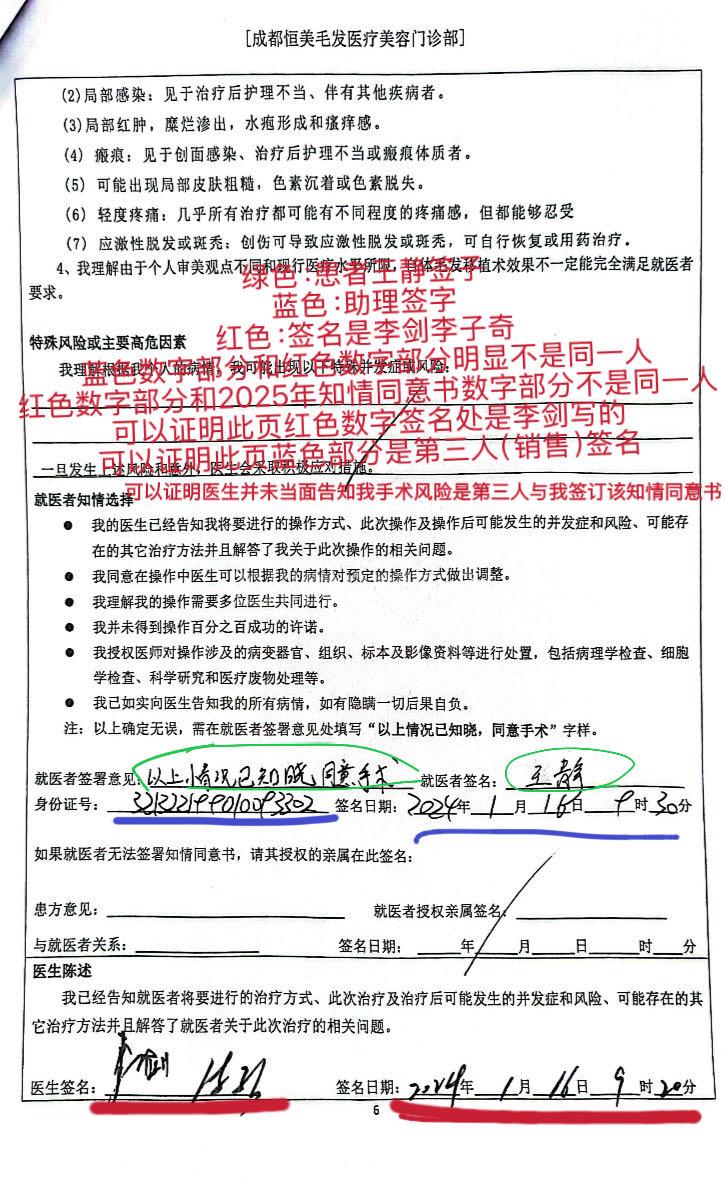 [成都恒美毛发医疗美容门诊部]
(2)局部感染：见于治疗后护理不当、伴有其他疾病者。
(3)局部红肿，糜烂渗出，水疱形成和瘙痒感。
(4) 瘢痕：见于创面感染、治疗后护理不当或瘢痕体质者。
(5) 可能出现局部皮肤粗糙，色素沉着或色素脱失。
(6) 轻度疼痛：几乎所有治疗都可能有不同程度的疼痛感，但都能够忍受
(7) 应激性脱发或斑秃：创伤可导致应激性脱发或斑秃，可自行恢复或用药治疗。
4、我理解由于个人审美观点不同和现行医疗水平所限，自体毛发移植术效果不一定能完全满足就医者
要求。
绿色:患者王静签字
蓝色:助理签字
红色:签名是李剑李子奇
特殊风险或主要高危因素
我理解根据我个人的病情，我可能出现以下特殊并发症或风险：
蓝色数字部分和红色数字部分明显不是同一人
红色数字部分和2025年知情同意书数字部分不是同一人
可以证明此页红色数字签名处是李剑写的
可以证明此页蓝色部分是第三人(销售)签名
一旦发生上述风险和意外，医生会采取积极应对措施。
可以证明医生并未当面告知我手术风险是第三人与我签订该知情同意书
就医者知情选择
● 我的医生已经告知我将要进行的操作方式、此次操作及操作后可能发生的并发症和风险、可能存
在的其它治疗方法并且解答了我关于此次操作的相关问题。
● 我同意在操作中医生可以根据我的病情对预定的操作方式做出调整。
● 我理解我的操作需要多位医生共同进行。
● 我并未得到操作百分之百成功的许诺。
● 我授权医师对操作涉及的病变器官、组织、标本及影像资料等进行处置，包括病理学检查、细胞
学检查、科学研究和医疗废物处理等。
● 我已如实向医生告知我的所有病情，如有隐瞒一切后果自负。
注：以上确定无误，需在就医者签署意见处填写“以上情况已知晓，同意手术”字样。
就医者签署意见：以上情况已知晓，同意手术 就医者签名：王静
身份证号：321322199010093302 签名日期：2024年1月16日9时30分
如果就医者无法签署知情同意书，请其授权的亲属在此签名：
患方意见： 就医者授权亲属签名：
与就医者关系： 签名日期： 年 月 日 时 分
医生陈述
我已经告知就医者将要进行的治疗方式、此次治疗及治疗后可能发生的并发症和风险、可能存在的其
它治疗方法并且解答了就医者关于此次治疗的相关问题。
医生签名： 签名日期：2024年1月16日9时20分
6